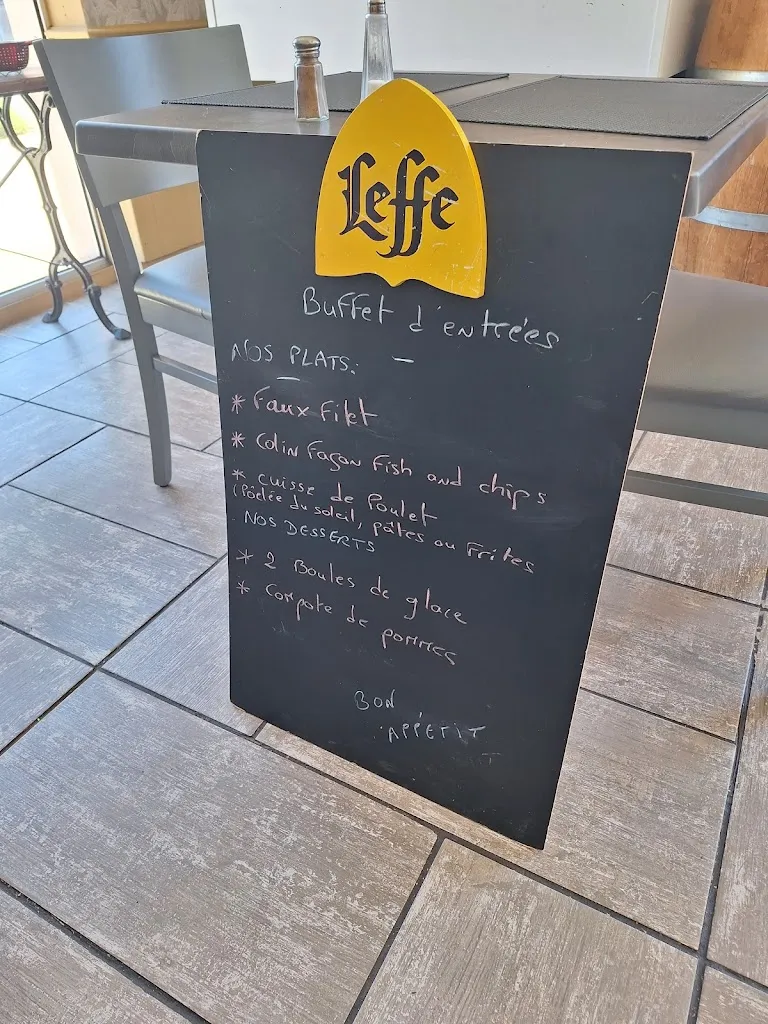 Leffe
Buffet d'entrées
NOS PLATS:
* Faux Filet
* Colin Façon Fish and chips
* cuisse de Poulet
(Pôelée du soleil, pâtes ou Frites
NOS DESSERTS
* 2 Boules de glace
* Compote de pommes
BON
APPÉTIT